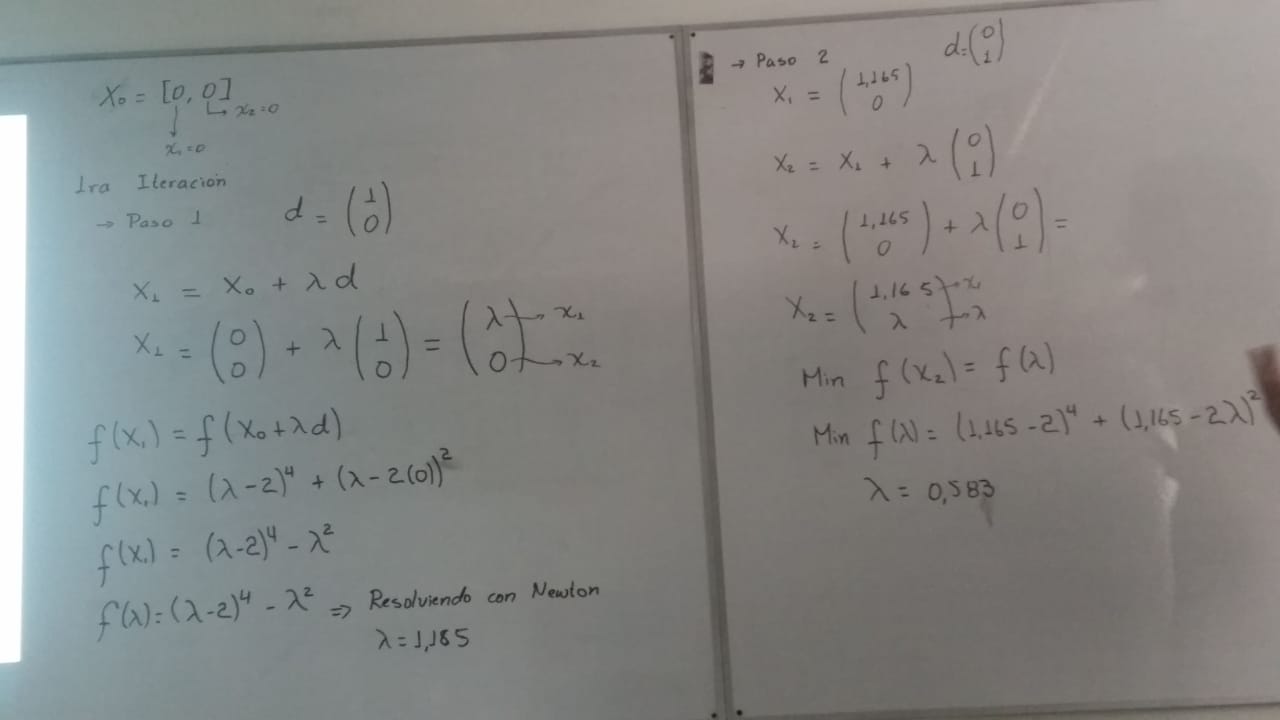 X₀ = [0, 0]
x₂=0
x₁=0
1ra Iteracion
→ Paso 1 d = (1 0)
X₁ = X₀ + λd
X₁ = (0 0) + λ(1 0) = (λ 0) → x₁ → x₂
f(x₁) = f(x₀+λd)
f(x₁) = (λ-2)⁴ + (λ-2(0))²
f(x₁) = (λ-2)⁴ - λ²
f(λ)=(λ-2)⁴ - λ² ⇒ Resolviendo con Newton
λ=1,165
→ Paso 2 d=(0 1)
X₁ = (1,165 0)
X₂ = X₁ + λ(0 1)
X₂ = (1,165 0) + λ(0 1) =
X₂ = (1,165 λ) → x → λ
Min f(x₂) = f(λ)
Min f(λ) = (1,165-2)⁴ + (1,165-2λ)²
λ = 0,583